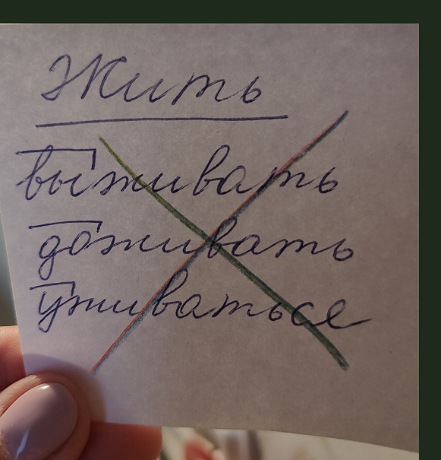 Жить
выживать
доживать
уживаться